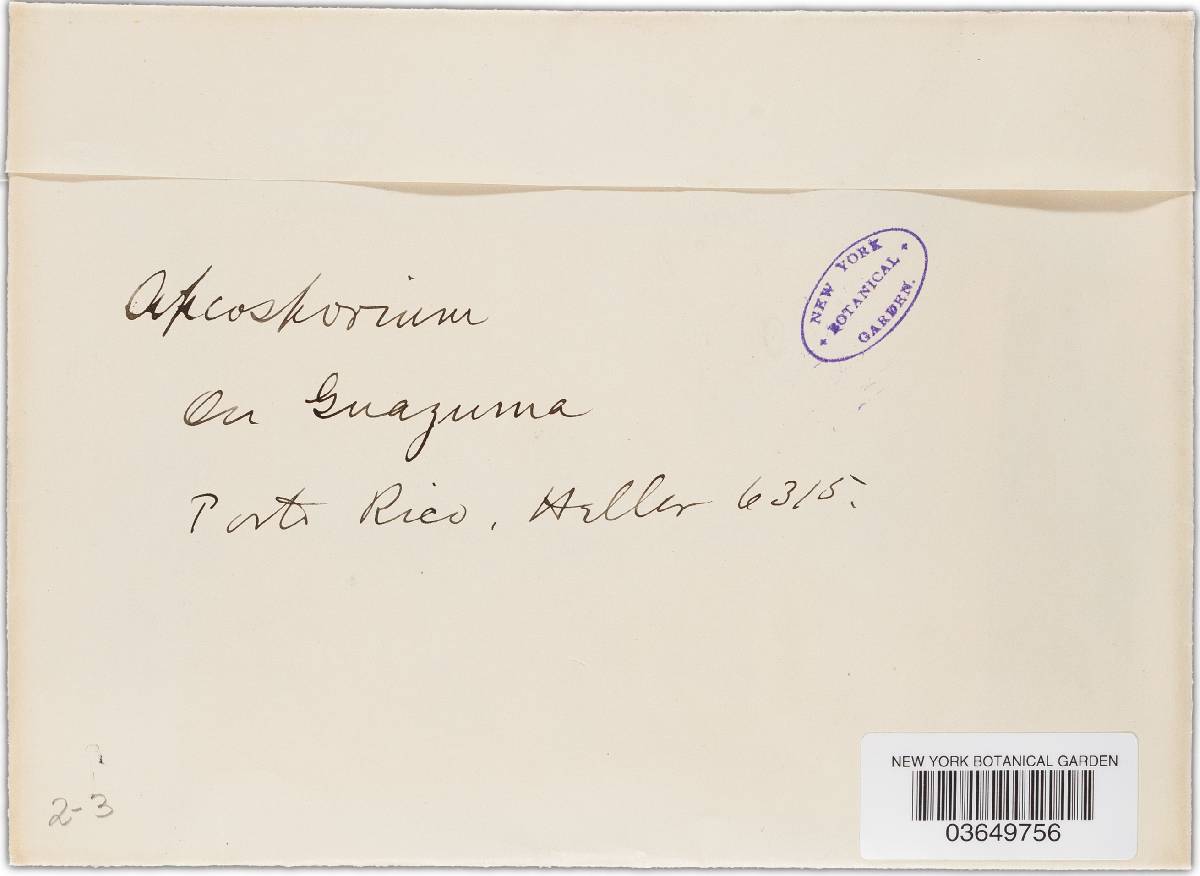 Apiosporium
On Guazuma
Porto Rico, Heller 6315.
NEW YORK
BOTANICAL
GARDEN.
2-3
NEW YORK BOTANICAL GARDEN
03649756